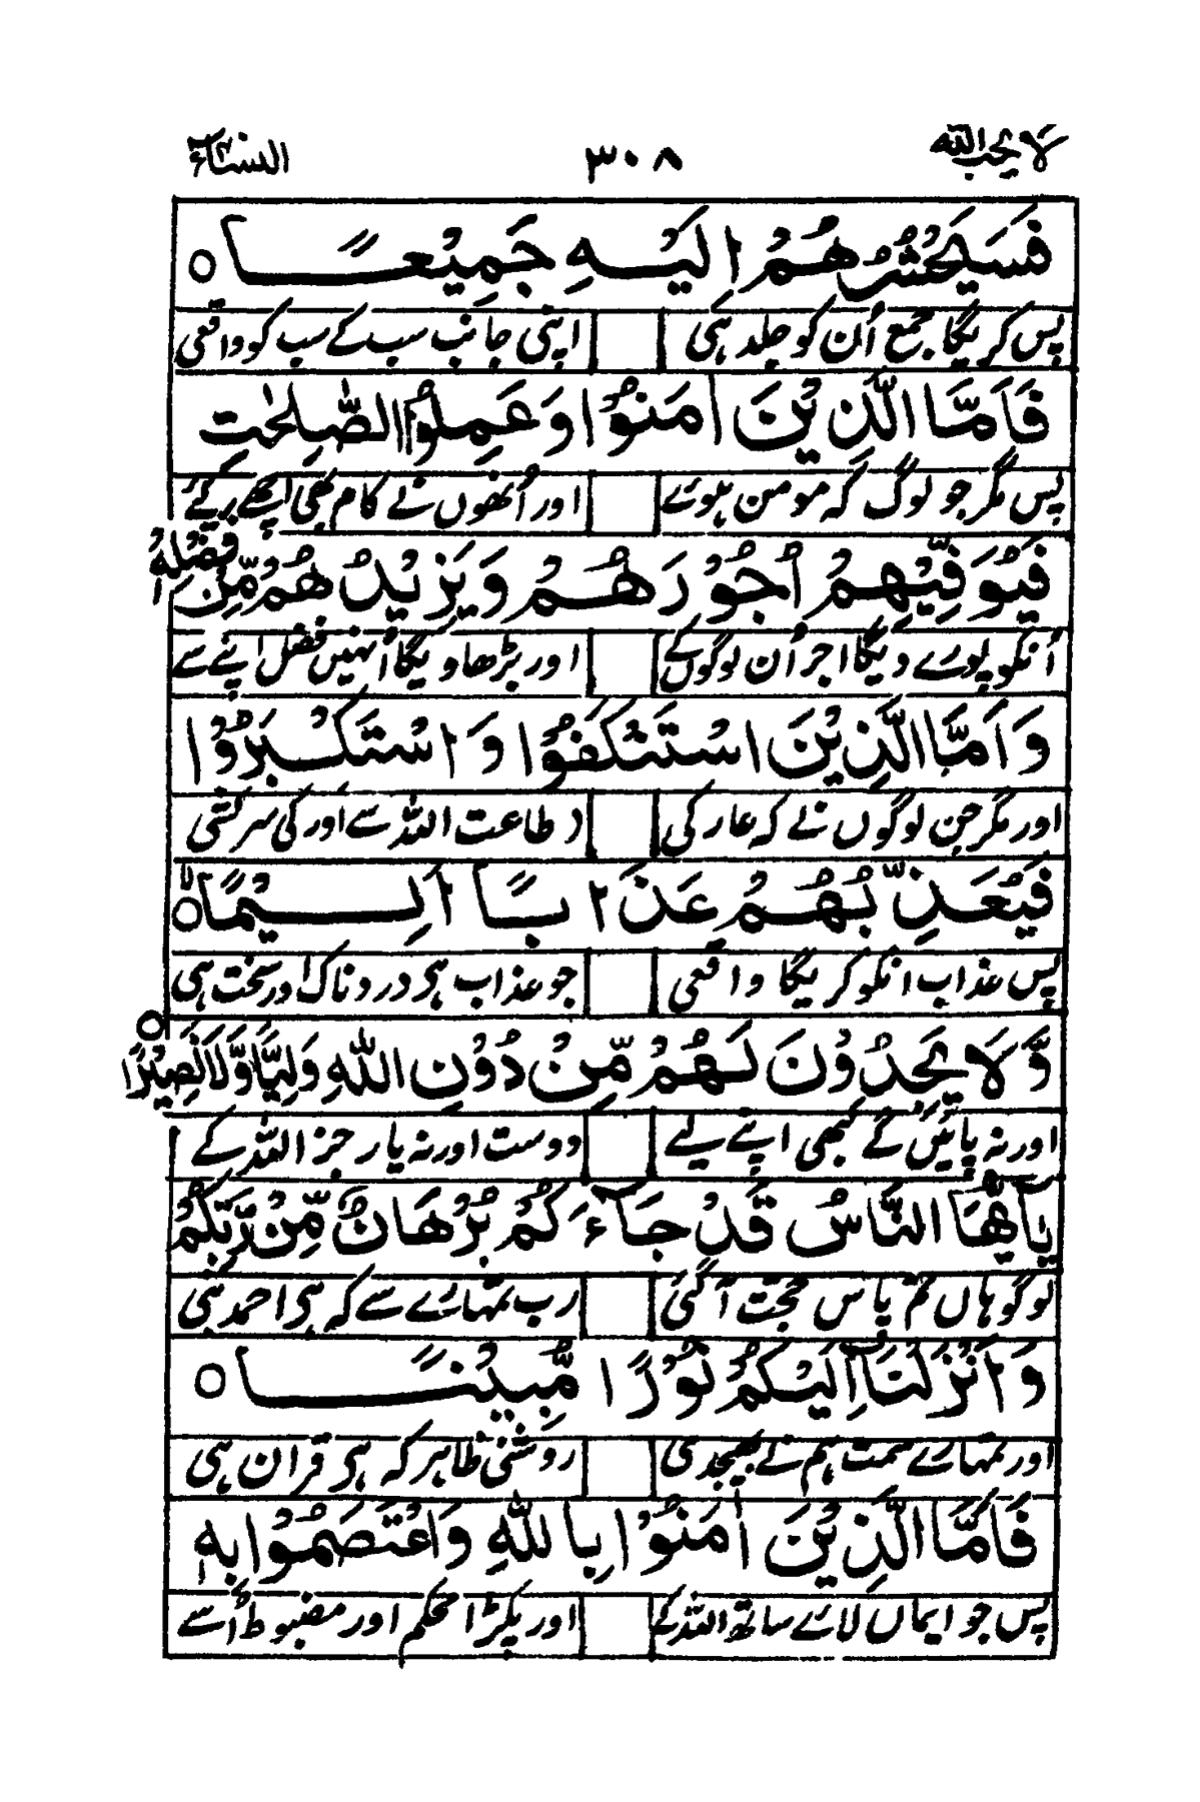 لا يحب الله ٣٠٨ النساء٤
فَسَيَحْشُرُهُمْ اِلَيْهِ جَمِيْعًا ○
پس کریگا جمع اُن کو جلد ہی اپنی جانب سب کے سب کو واقعی
فَاَمَّا الَّذِيْنَ اٰمَنُوْا وَعَمِلُوا الصّٰلِحٰتِ
پس مگر جو لوگ کہ مومن ہوئے اور اُنھوں نے کام بھی اچھے کئے
فَيُوَفِّيْهِمْ اُجُوْرَهُمْ وَيَزِيْدُهُمْ مِّنْ فَضْلِهٖ
اُنکو پورے دیگا اجر اُن لوگوں کے اور بڑھا دیگا اُنہیں فضل اپنے سے
وَاَمَّا الَّذِيْنَ اسْتَنْكَفُوْا وَاسْتَكْبَرُوْا
اور مگر جن لوگوں نے کہ عار کی طاعت اللہ سے اور کی سرکشی
فَيُعَذِّبُهُمْ عَذَابًا اَلِيْمًا ○
پس عذاب انکو کریگا واقعی جو عذاب ہی دردناک اور سخت ہی
وَّلَا يَجِدُوْنَ لَهُمْ مِّنْ دُوْنِ اللّٰهِ وَلِيًّا وَّلَا نَصِيْرًا ○
اور نہ پائیں گے کبھی اپنے لیے دوست اور نہ یار جز اللہ کے
يٰٓاَيُّهَا النَّاسُ قَدْ جَآءَكُمْ بُرْهَانٌ مِّنْ رَّبِّكُمْ
لوگو ہاں تم پاس حجت آ گئی رب تمہارے سے کہ ہی احمد نبی
وَاَنْزَلْنَآ اِلَيْكُمْ نُوْرًا مُّبِيْنًا ○
اور تمہارے سمت ہم نے بھیجدی روشنی ظاہر کہ ہی قرآن ہی
فَاَمَّا الَّذِيْنَ اٰمَنُوْا بِاللّٰهِ وَاعْتَصَمُوْا بِهٖ
پس جو ایماں لائے ساتھ اللہ کے اور پکڑا محکم اور مضبوط اُسے